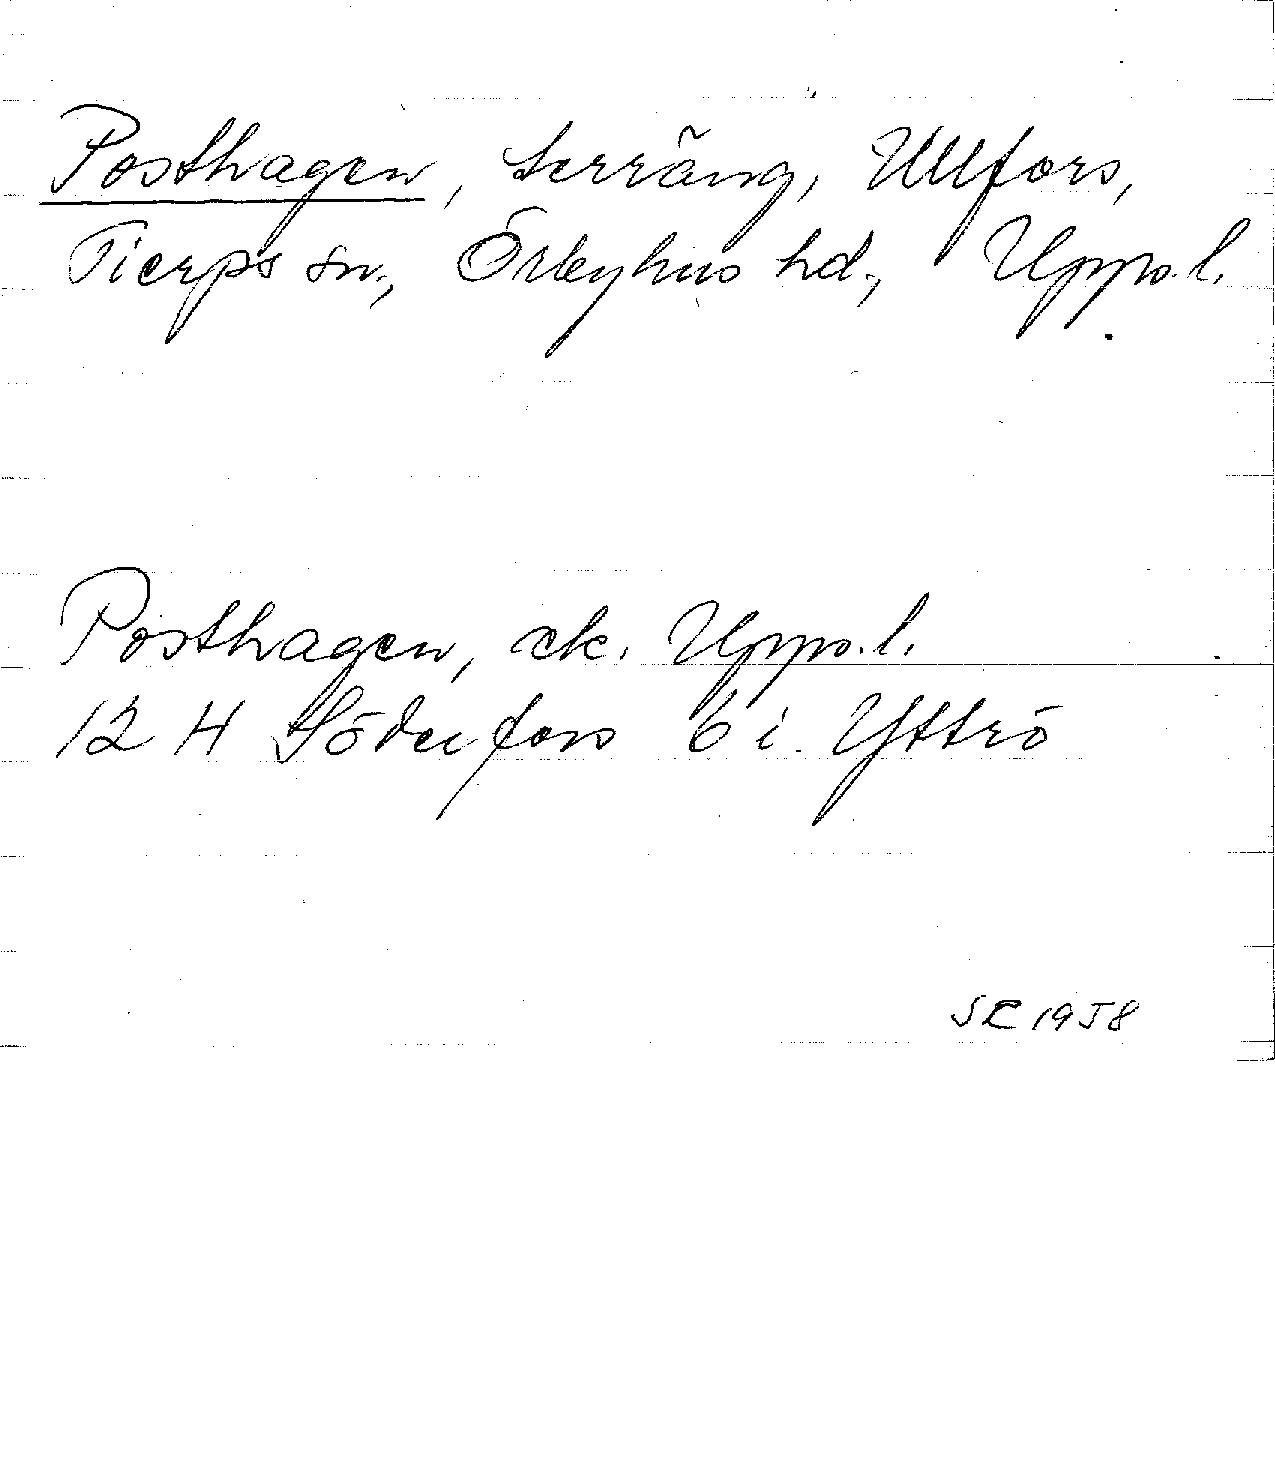 Posthagen, terräng, Ullfors,
Tierps sn., Örbyhus hd., Upps.l.
Posthagen, ek. Upps.l.
12 H Söderfors 6 i. Yttrö
SE 1958